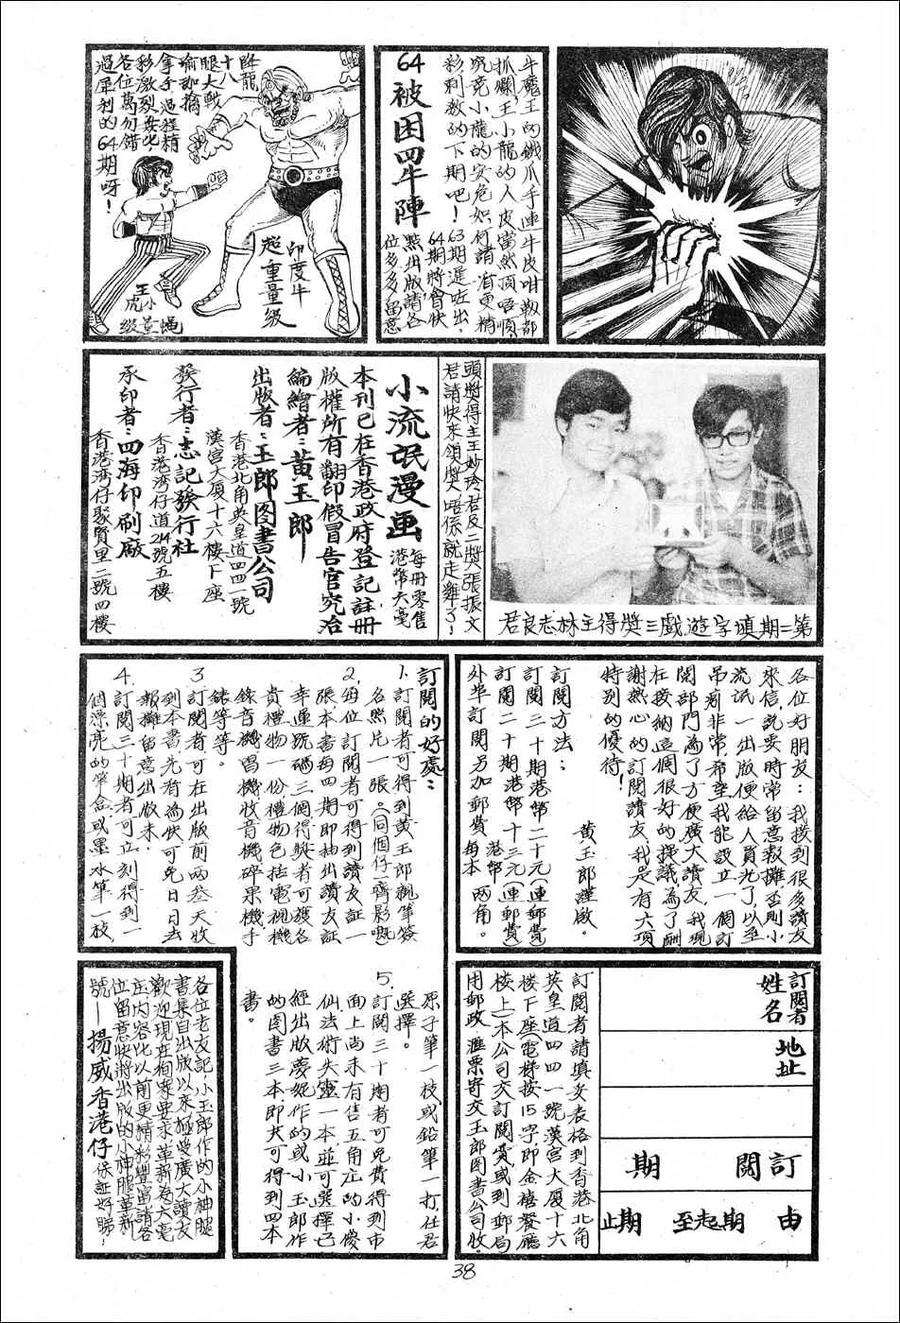 牛魔王的鐵爪手連牛皮咁靱都
抓爛王小龍的人皮當然頂唔順
究竟小龍的安危如何請省更精
彩刺激的下期吧!
63期遲咗出,
64期將會快
點出版請各
位多多留意
64被困四牛陣
臥龍
十八
腿大戰
瑜珈摛
拿手過程精
彩激烈
各位萬勿錯
過犀利的64期呀!
印度牛
超重量級
王小虎
蠅量級
頭獎得主王妙玲君及二獎張振文
君請快來領獎唔係就走雞了!
第二期填字遊戲三獎得主林志良君
小流氓漫画
每冊零售
港幣大毫
本刊已在香港政府登記註冊
版權所有翻印假冒告官究治
編繪者:黃玉郎
出版者:玉郎图書公司
香港北角英皇道四四一號
漢宮大厦十六樓下座
發行者:志記發行社
香港灣仔道214號五樓
承印者:四海印刷廠
香港灣仔聚賢里二號四樓
各位好朋友:我接到很多讀友
來信,說要時常留意報攤否則小
流氓一出版便給人買光了,以至
吊癮非常,希望我能設立一個訂
閱部門為了方便廣大讀友,我現
在接納這個很好的提議為了酬
謝熱心的訂閱讀友,我是有六項
特別的優待!
黃玉郎謹啟。
訂閱方法:
訂閱三十期港幣二十元(連郵費)
訂閱二十期港幣十三元(連郵費)
外埠訂閱另加郵費每本港幣兩角。
訂閱的好處:
1.訂閱者可得到黃玉郎親筆簽
名照片一張(同個仔一齊影嘅)
2.每位訂閱者可得到讀友証一
張本書每四期即抽出讀友証
幸運號碼三個得獎者可獲名
貴禮物一份禮物包括電視機
錄音機唱機收音機碎果機手
錶等等。
3.訂閱者可在出版前兩叁天收
到本書先看為快可免日日去
報攤留意出版未。
4.訂閱三十期者可立刻得到一
個漂亮的筆盒或墨水筆一枝,
原子筆一枝或鉛筆一打,任君
選擇。
5.訂閱三十期者可免費得到市
面上尚未有售五角庄的小傻
仙法術失靈一本並可選擇已
經出版慶妮作的或小玉郎作
的图書三本即共可得到四本
書。
訂閱者
姓名
地址
訂閱 期
由 期起至 期止
訂閱者請填妥表格到香港北角
英皇道四四一號漢宮大厦十六
樓下座(電梯按15字即金禧餐廳
樓上)本公司交訂閱費或到郵局
用郵政滙票寄交玉郎图書公司收。
各位老友記,小玉郎作的小神腿
書集自出版以來極受廣大讀友
歡迎現在相架要求革新為大毫
庄內容比以前更精彩豐富請各
位留意快將出版的小神腿革新
號—揚威香港仔保証好睇!
38